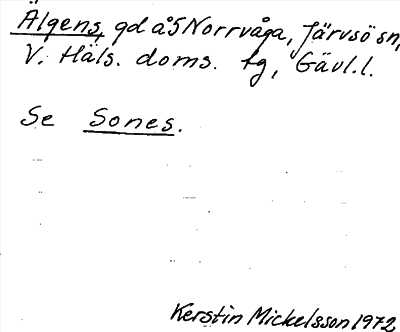 Älgens, gd å 5 Norrvåga, Järvsö sn,
V. Häls. doms. tg, Gävl.l.
Se Sones.
Kerstin Mickelsson 1972